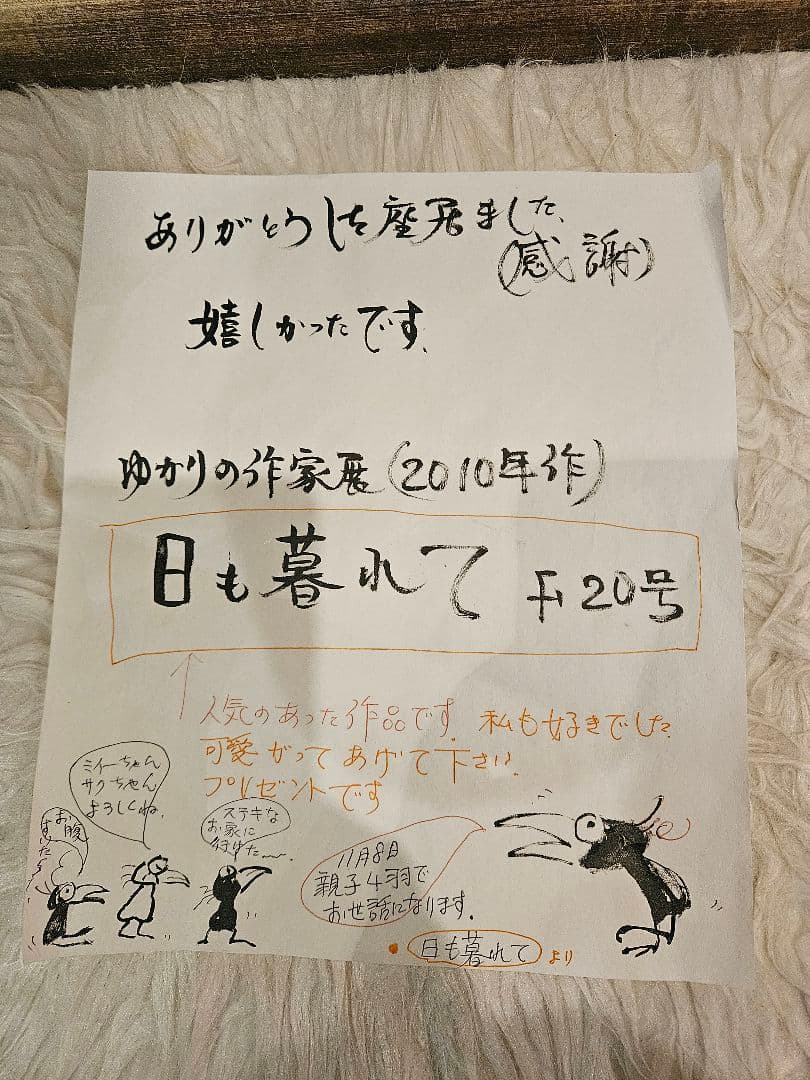 ありがとうご座居ました、
(感謝)
嬉しかったです、
ゆかりの作家展(2010年作)
日も暮れて F20号
人気のあった作品です、私も好きでした、
可愛がってあげて下さい、
プレゼントです
ミイーちゃん
サクちゃん
よろしくね、
お腹
すいた〜
ステキな
お家に
行けた〜、
11月8日
親子4羽で
お世話になります、
・日も暮れて より